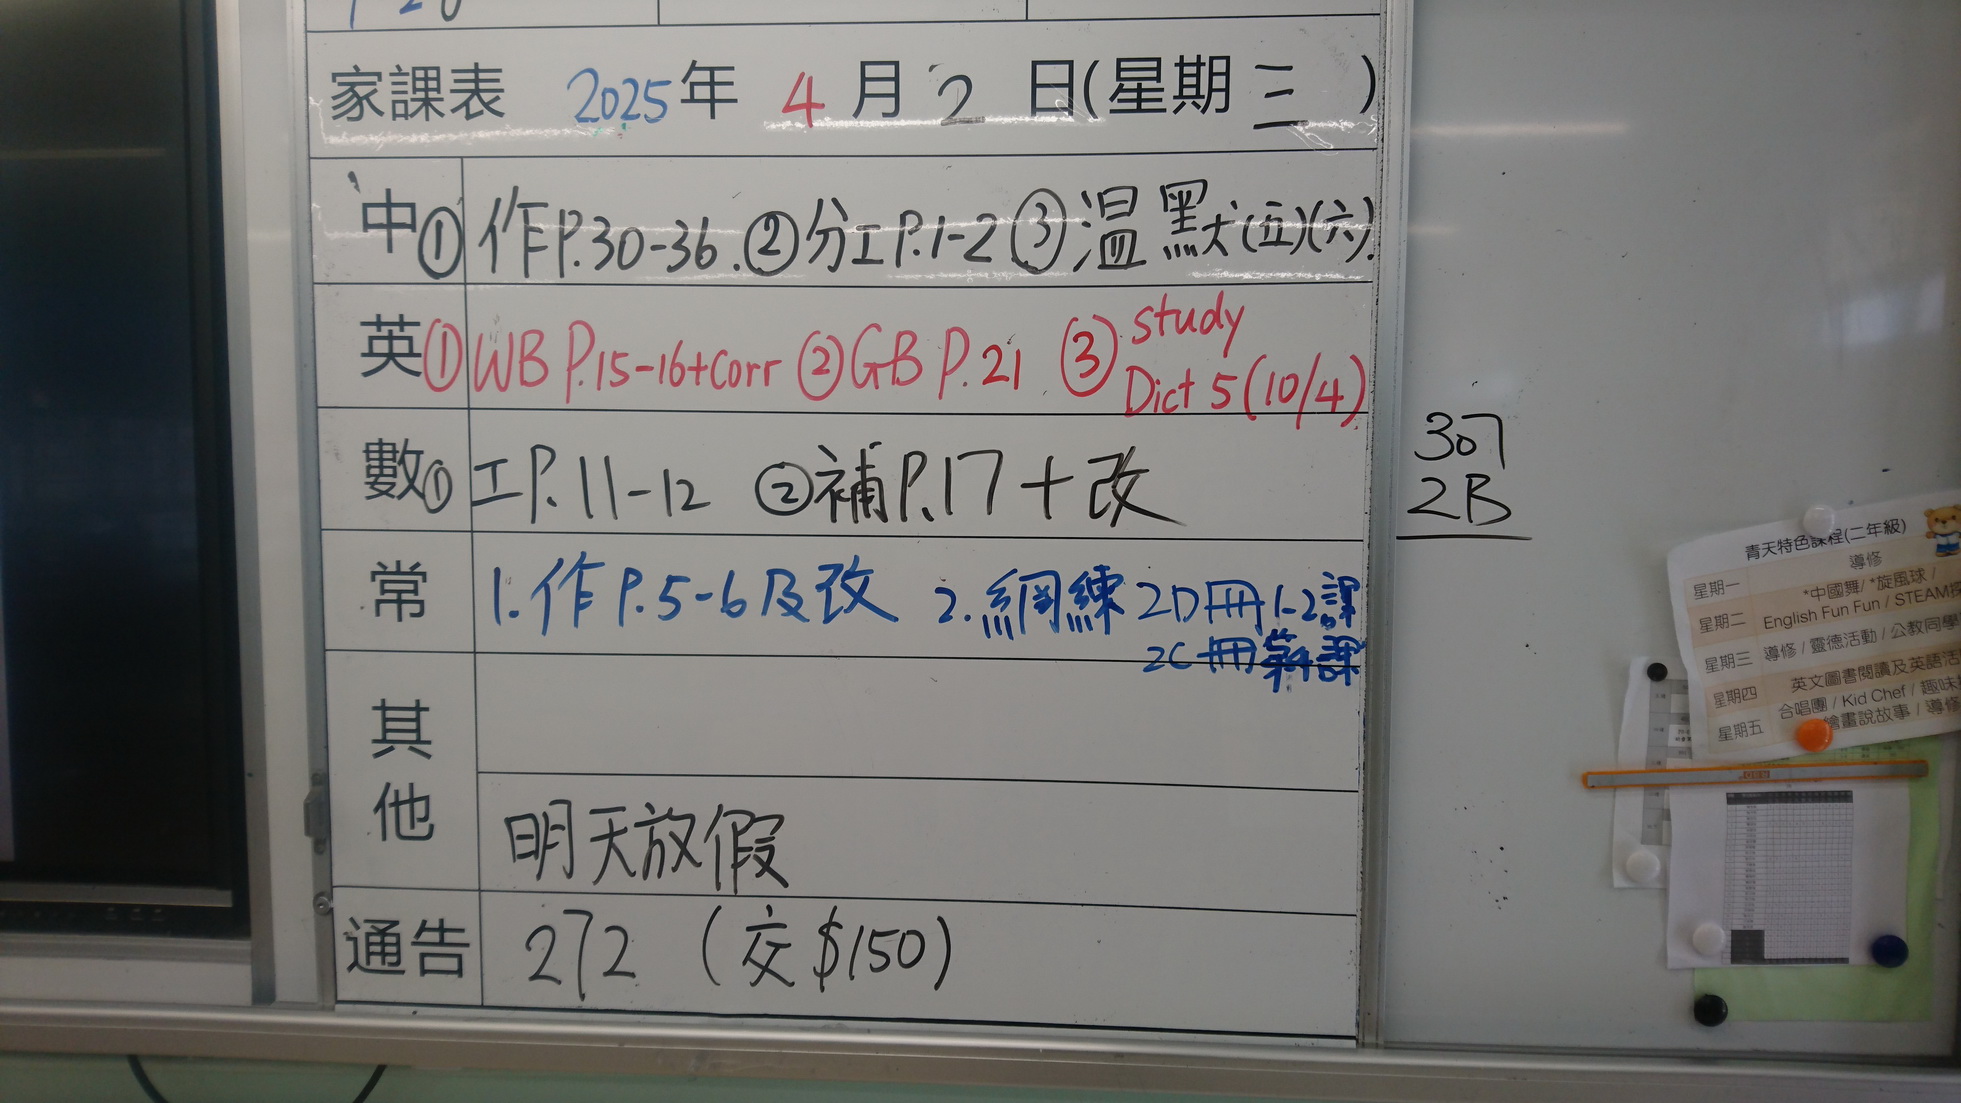 家課表 2025年 4月2日(星期三)
中 ①作P.30-36. ②分工P.1-2 ③温默(五)(六).
英 ①WB P.15-16+Corr ②GB P.21 ③study
Dict 5 (10/4)
數 ①工P.11-12 ②補P.17+改
常 1.作P.5-6及改 2.網練2D冊1-2課
2C冊第4課
其他
明天放假
通告 272 (交$150)
307
2B
青天特色課程(二年級)
導修
星期一 *中國舞/ *旋風球 /
星期二 English Fun Fun / STEAM
星期三 導修 / 靈德活動 / 公教同學
星期四 英文圖書閱讀及英語活
合唱團 / Kid Chef / 趣味
星期五 繪畫說故事 / 導修